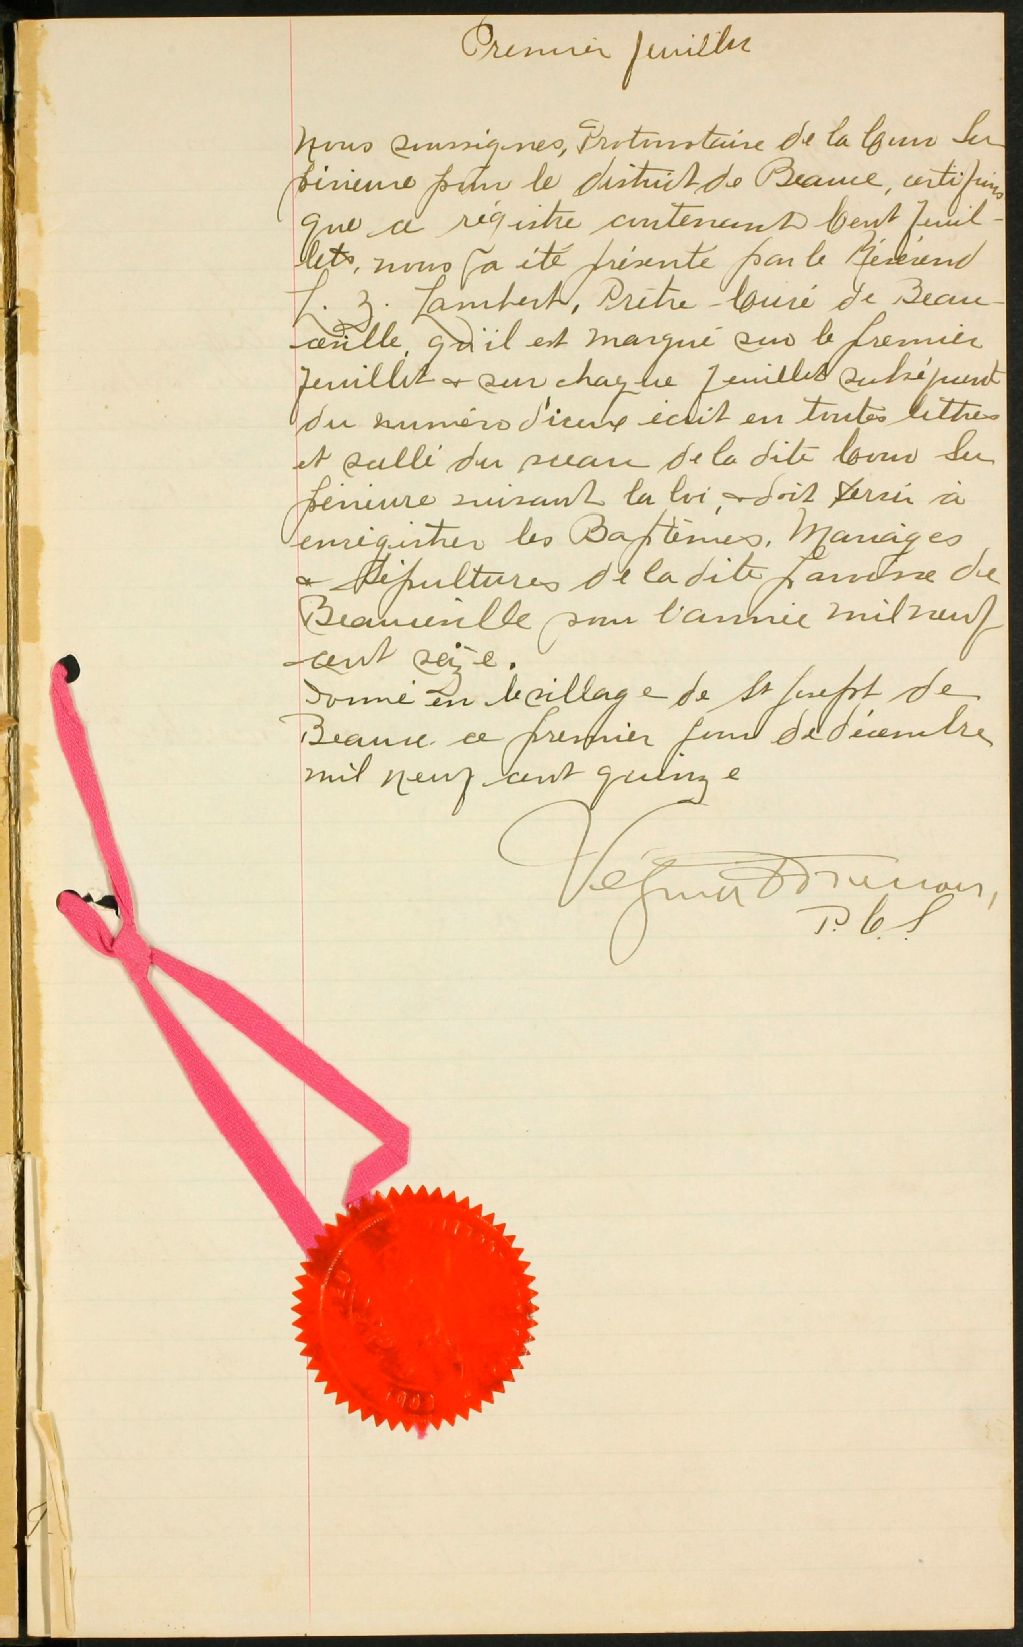 Premier feuillet
Nous soussignés, Protonotaire de la Cour Su
périeure pour le district de Beauce, certifions
que ce régistre contenant Cent feuil-
lets, nous a été présenté par le Révérend
L. Z. Lambert, Prêtre-Curé de Beau-
ceville, qu'il est marqué sur le premier
feuillet & sur chaque feuillet subséquent
du numéro d'iceux écrit en toutes lettres
et scellé du sceau de la dite Cour Su
périeure suivant la loi, & doit servir à
enrégistrer les Baptêmes, Mariages
& Sépultures de la dite paroisse de
Beauceville pour l'année mil neuf
cent seize.
Donné en le village de St Joseph de
Beauce ce premier jour de décembre
mil neuf cent quinze
P. C. S.